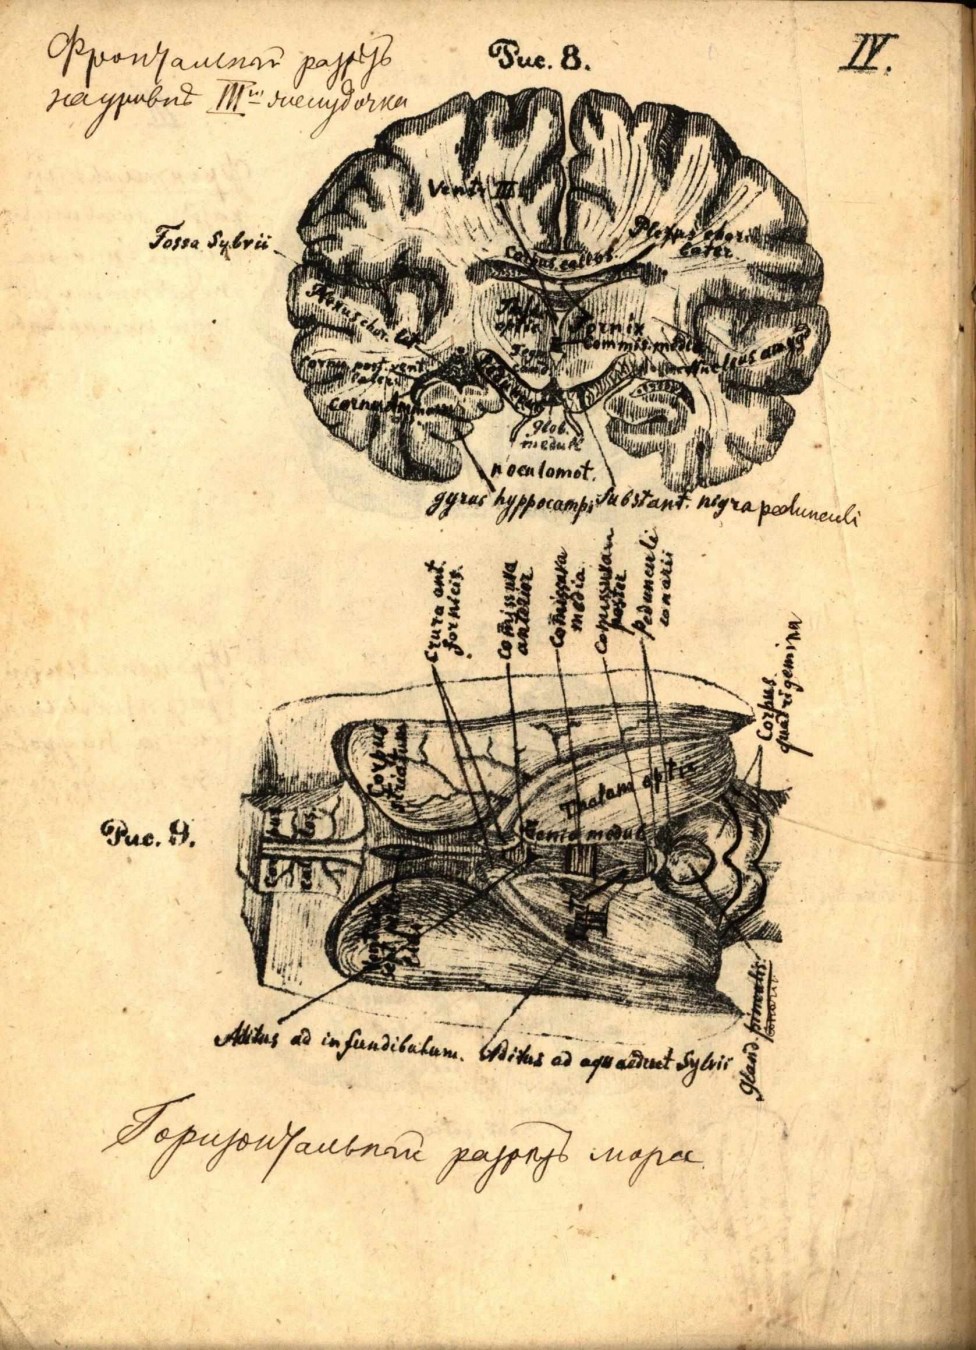 Фронтальный разрѣзъ
на уровнѣ III го желудочка
Рис. 8.
IV.
Ventr. III.
Fossa Sylvii
Plexus chorii
later.
Corpus callos.
Plexus chor. lat.
Thalam.
optic.
Fornix
Commis. media
Nucleus amyg
Cornu post. vent.
lateri
Cornu Ammon
glob.
medul
n oculomot.
gyrus hyppocampi
Substant. nigra pedunculi
Crura ant.
fornicis.
Comissura
anterior
Comissura
media.
Comissura
poster.
Pedunculi
conarii
Corpus
quadrigemina
Corpus
striatum
Thalam optic
Taenia medul
Рис. 9.
Corpus
callos.
Vent
III
Aditus ad infundibulum.
Aditus ad aquaeduct Sylvii
Gland. pinealis.
conarii
Горизонтальный разрѣзъ мозга